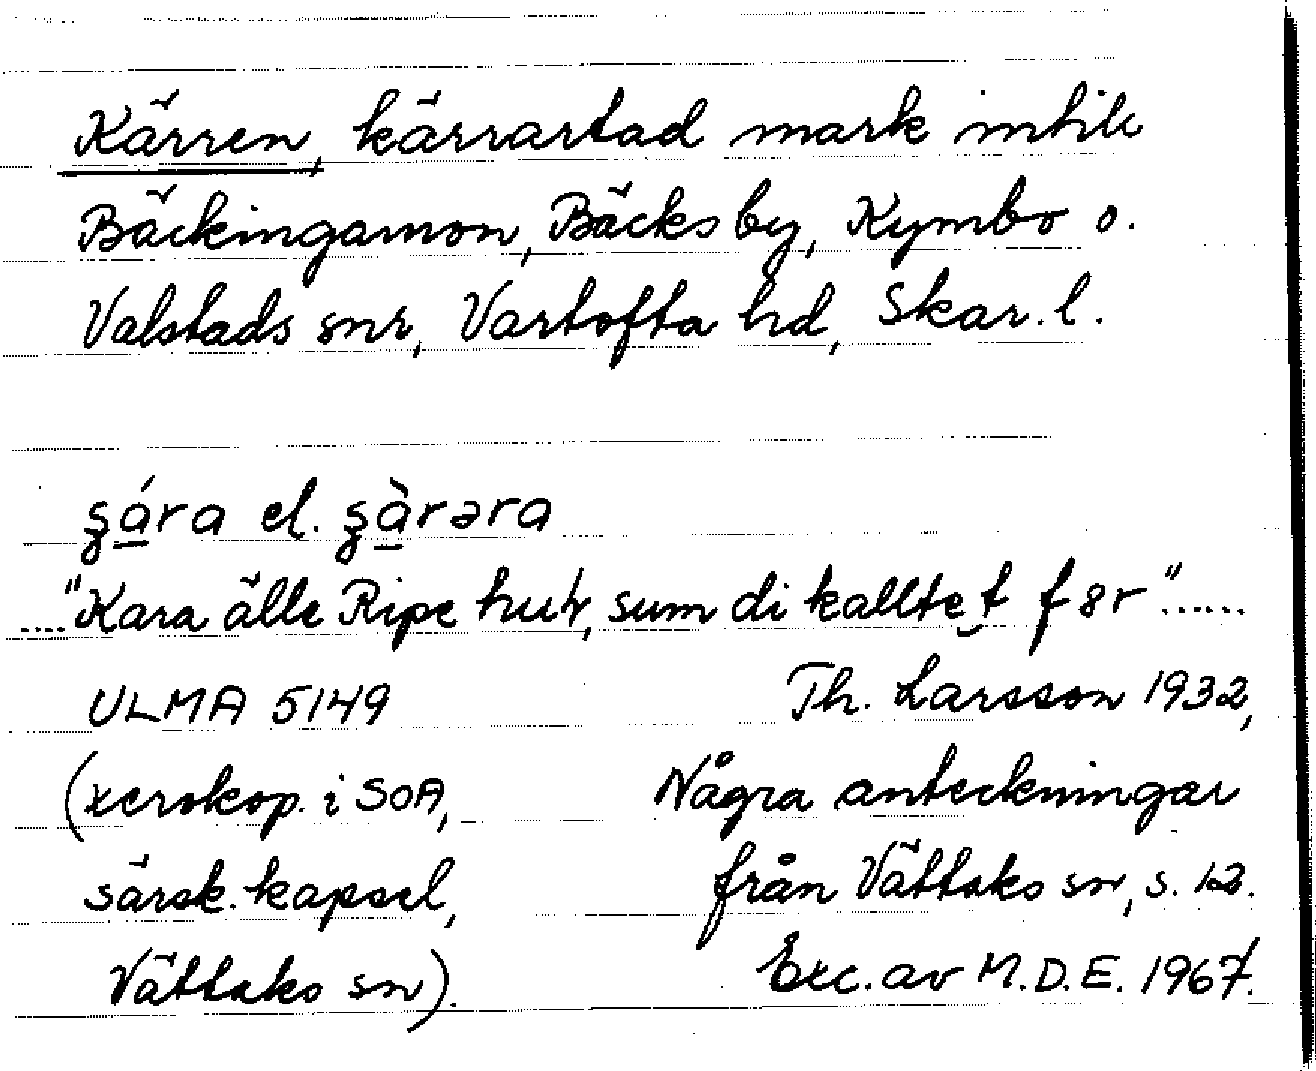 Kärren, kärrartad mark intill
Bäckingamon, Bäcksby, Kymbo o.
Valstads snr, Vartofta hd, Skar. l.
ʂára el. ʂàrəra
...."Kara älle Ripe hult, sum di kalltet før"......
ULMA 5149 Th. Larsson 1932,
(xerokop. i SOA, Några anteckningar
särsk. kapsel, från Vättaks sn, s. 12.
Vättaks sn). Exc. av M.D.E. 1967.